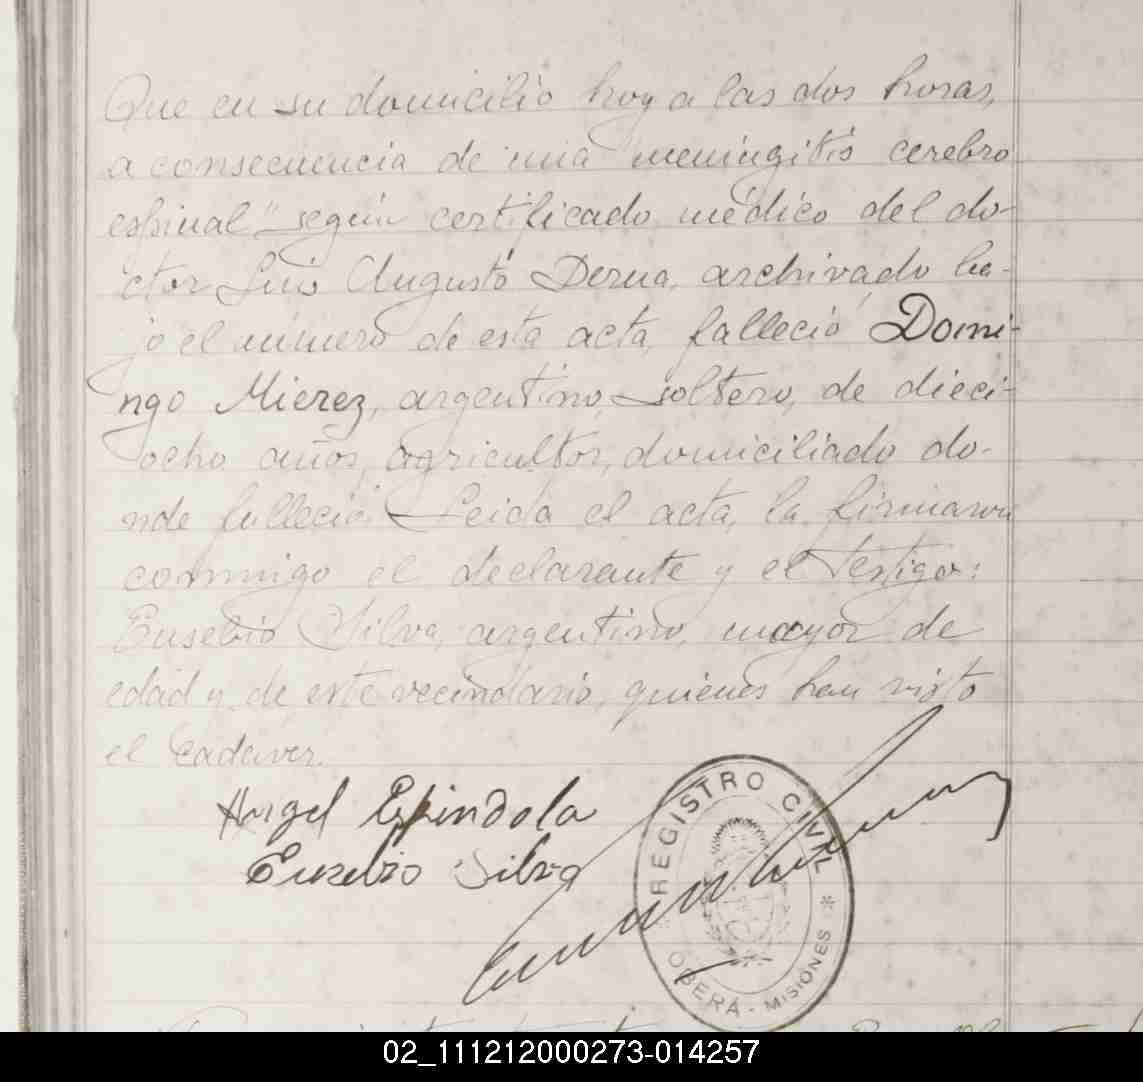 Que en su domicilio hoy a las dos horas,
a consecuencia de "una meningitis cerebro
espinal" según certificado médico del do-
ctor Luis Augusto Derna, archivado ba-
jo el número de esta acta, falleció Domi-
ngo Mierez, argentino, soltero, de dieci-
ocho años, agricultor, domiciliado do-
nde falleció. Leida el acta, la firmaron
conmigo el declarante y el testigo:
Eusebio Silva, argentino, mayor de
edad y de este vecindario, quienes han visto
el cadáver.
Angel Espindola
Eusebio Silva
REGISTRO CIVIL
OBERÁ - MISIONES
02_111212000273-014257